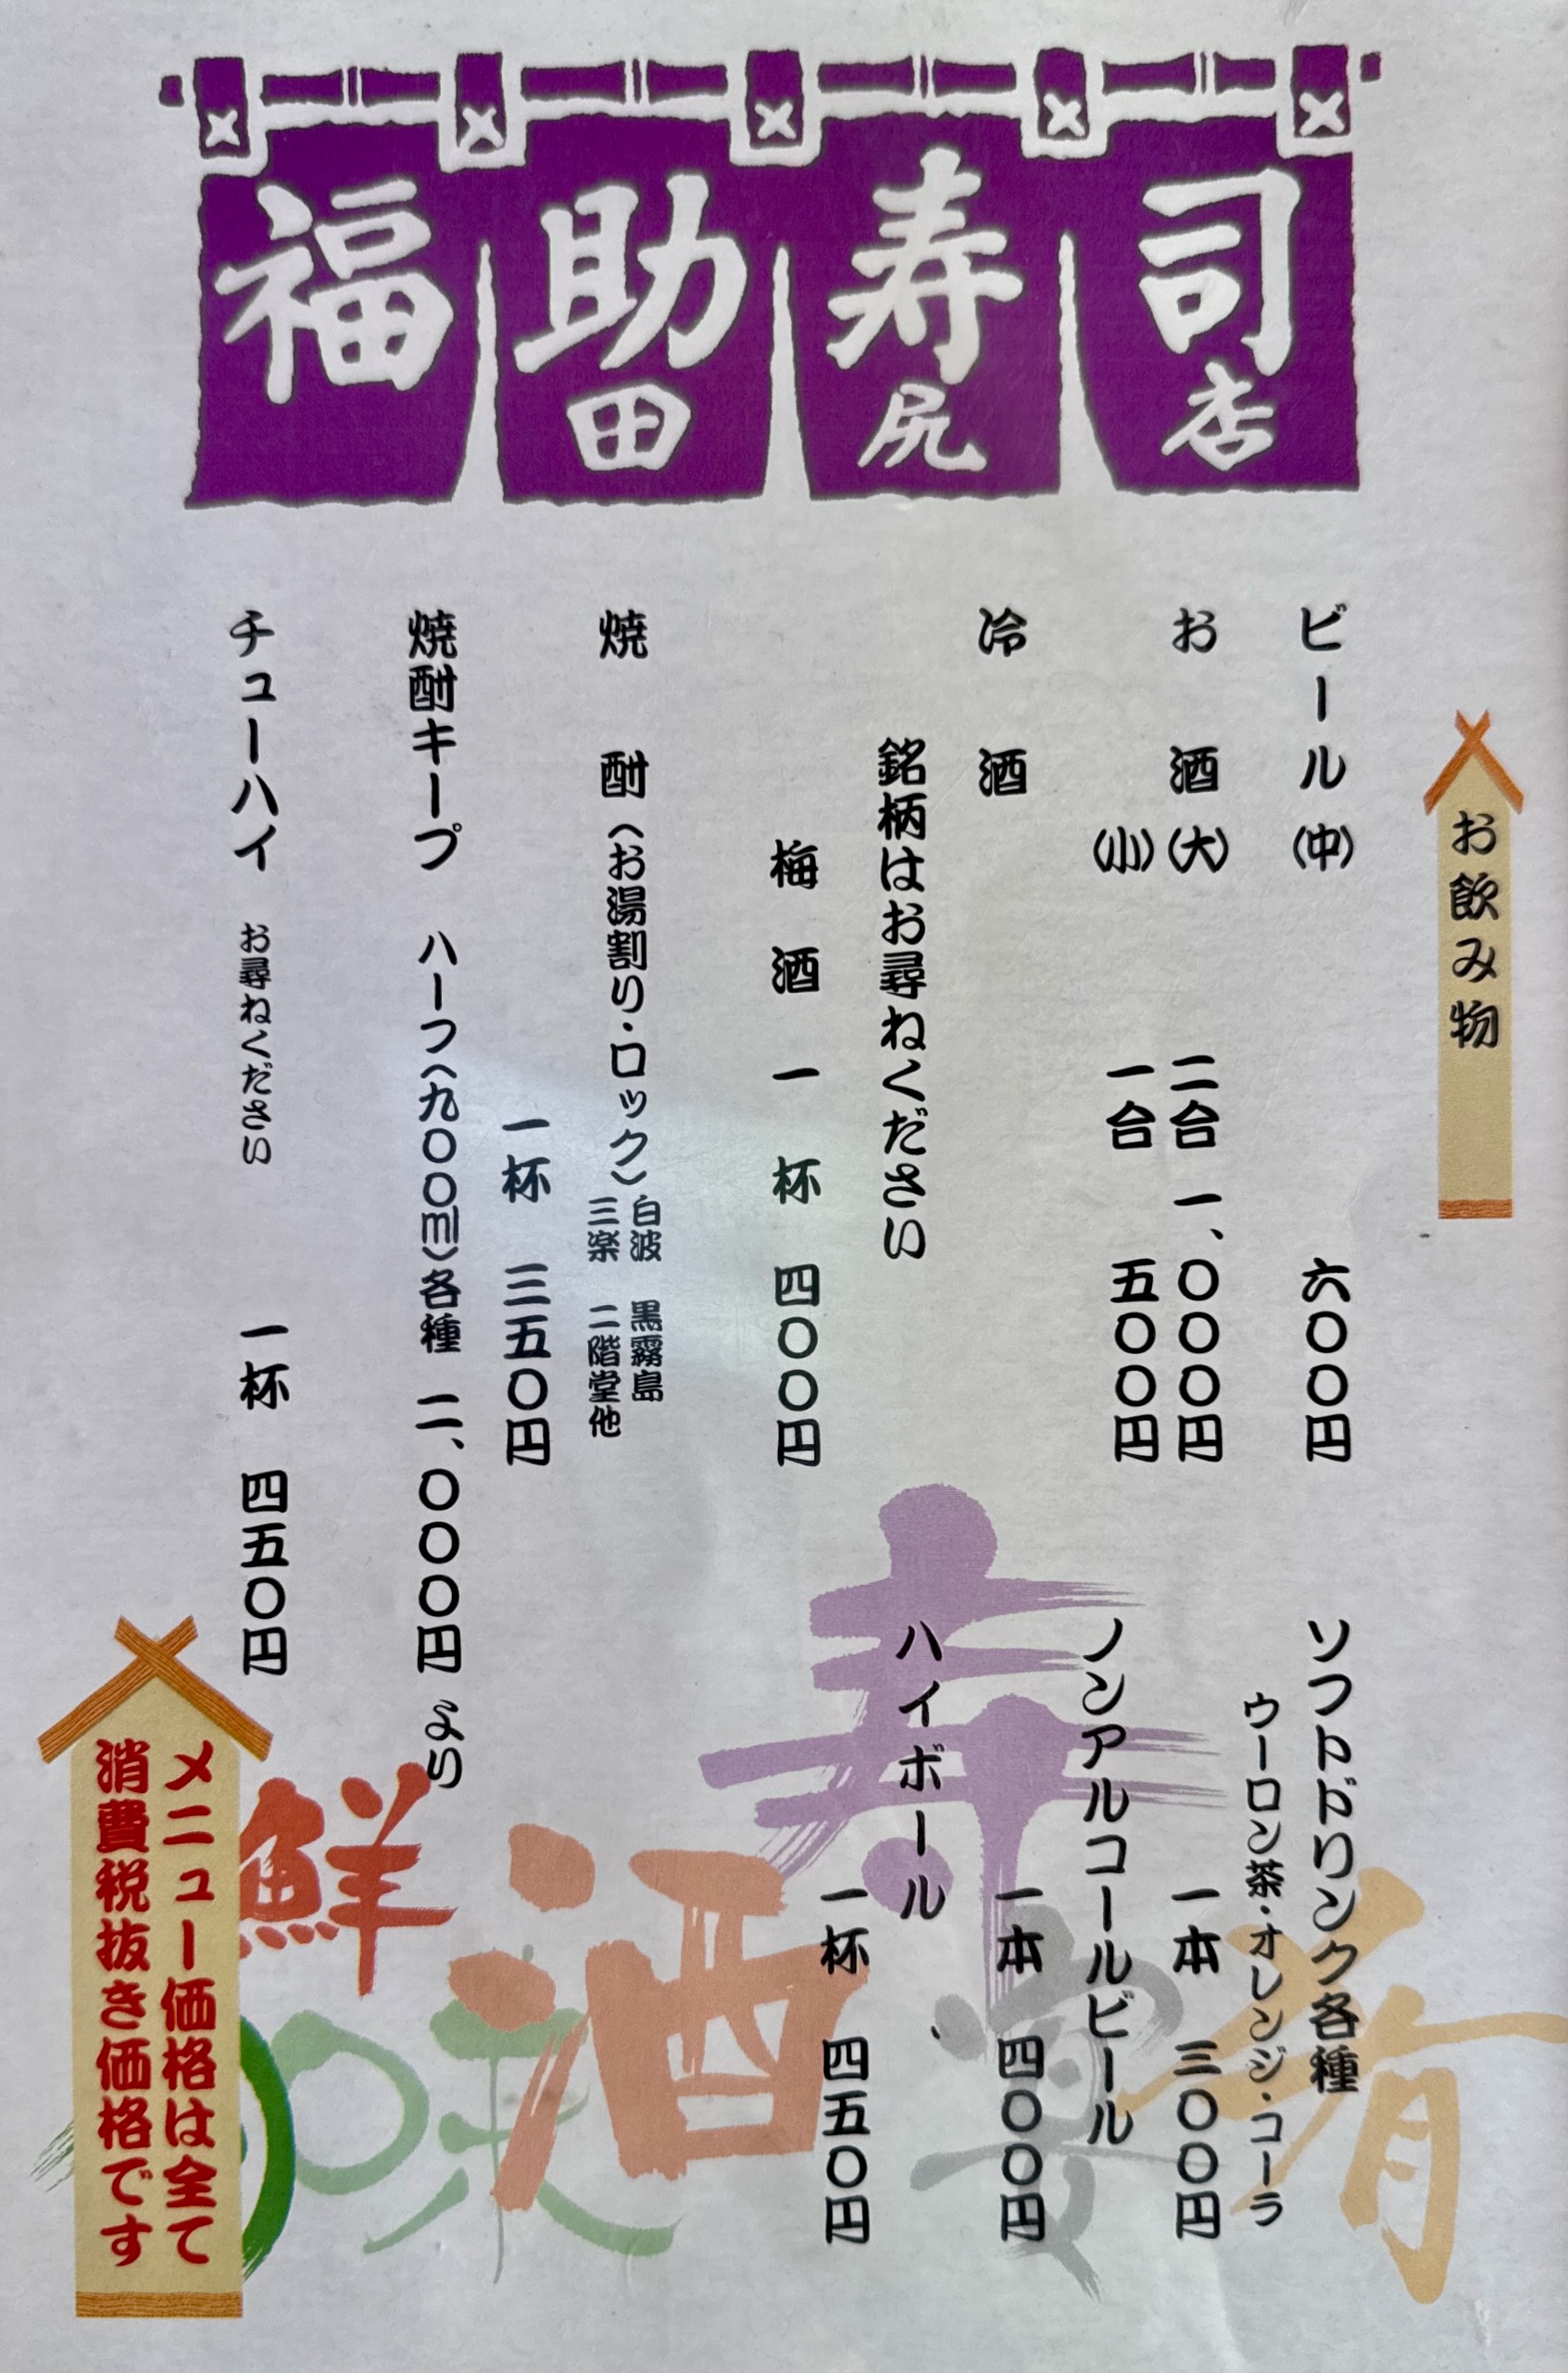 福助寿司
田尻店
お飲み物
ビール(中) 六〇〇円
お酒(大) 二合 一、〇〇〇円
(小) 一合 五〇〇円
冷酒
銘柄はお尋ねください
梅酒 一杯 四〇〇円
焼酎(お湯割り・ロック)
白波 黒霧島
三楽 二階堂他
一杯 三五〇円
焼酎キープ ハーフ(九〇〇ml)各種 二、〇〇〇円より
チューハイ お尋ねください 一杯 四五〇円
ソフトドリンク各種
ウーロン茶・オレンジ・コーラ
一本 三〇〇円
ノンアルコールビール
一本 四〇〇円
ハイボール
一杯 四五〇円
メニュー価格は全て
消費税抜き価格です
肴
宴
寿
酒
味
鮮